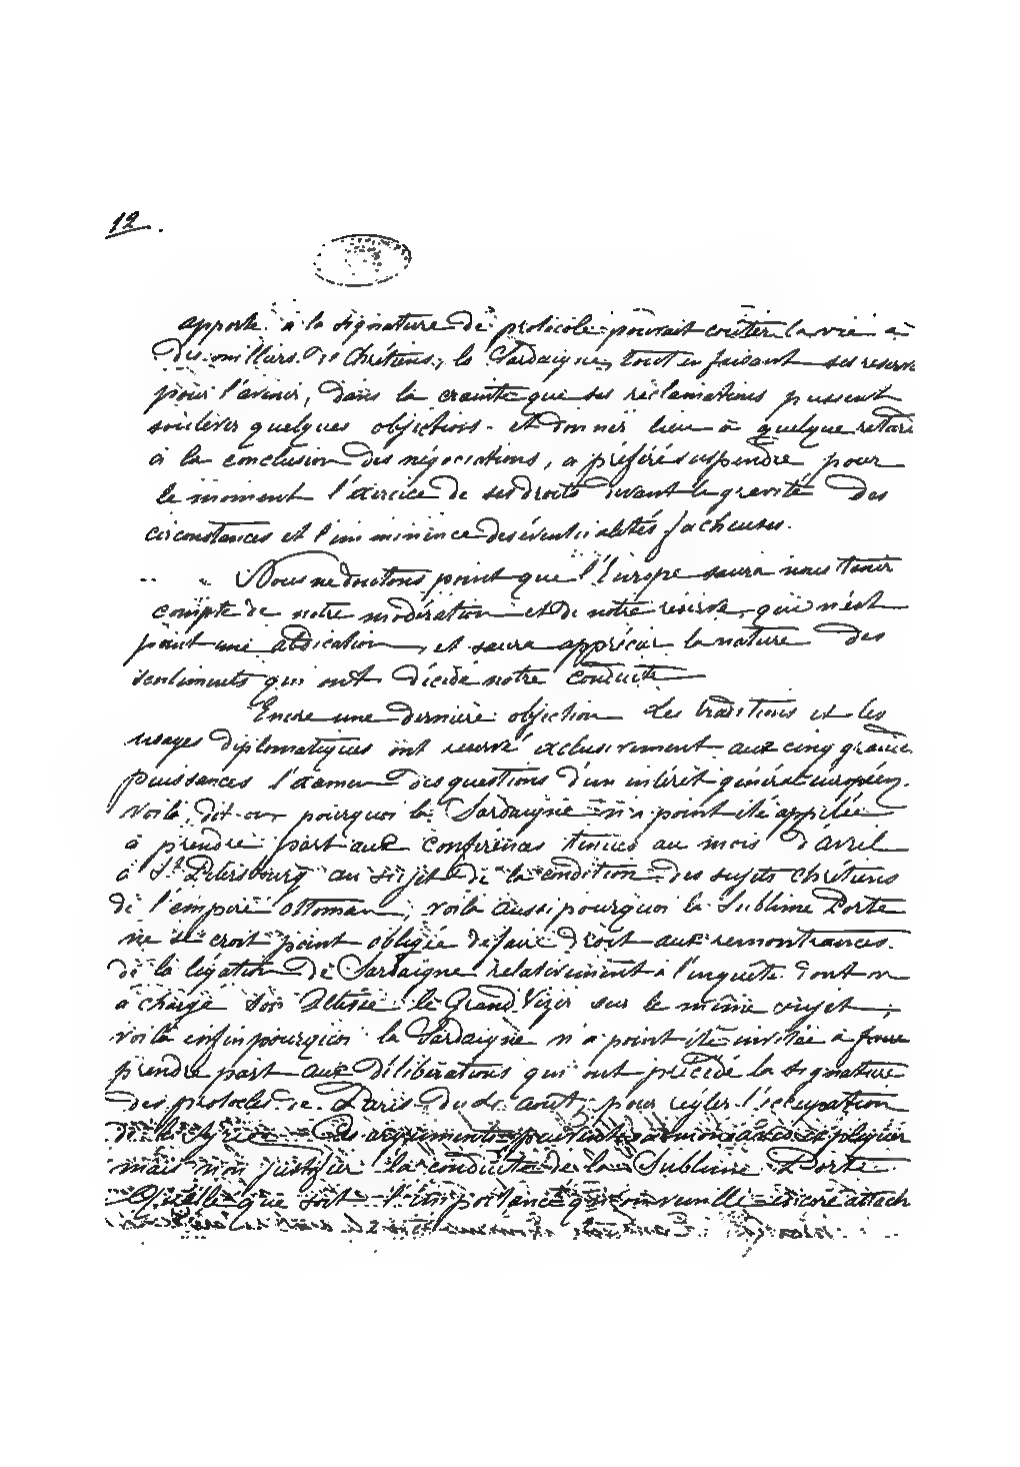 12.
apporté à la signature de protocole pourrait coûter la vie à
des milliers de Chrétiens, la Sardaigne, tout en faisant ses reserve
pour l'avenir, dans la crainte que ses réclamations pussent
soulever quelques objections et donner lieu à quelque retard
à la conclusion des négociations, a préféré suspendre pour
le moment l'exercice de ses droits devant la gravité des
circonstances et l'imminence des éventualités facheuses.
Nous ne doutons point que l'Europe saura nous tenir
compte de notre modération et de notre réserve, qui n'est
point une abdication, et saura apprécier la nature des
sentiments qui ont décidé notre conduite
Encore une dernière objection Les traditions et les
usages diplomatiques ont reservé exclusivement aux cinq grandes
puissances l'examen des questions d'un intérêt général européen.
Voilà, dit-on pourquoi la Sardaigne n'a point été appelée
à prendre part aux conférences tenues au mois d'avril
à St. Pétersbourg au sujet de la condition des sujets chrétiens
de l'empire ottoman; voilà aussi pourquoi la Sublime Porte
ne se croit point obligée de faire droit aux remontrances
de la légation de Sardaigne relativement à l'enquête dont on
a chargé Son Altesse le Grand Vizir sur le même sujet;
voilà enfin pourquoi la Sardaigne n'a point été invitée à
prendre part aux délibérations qui ont précédé la signature
des protocles de Paris du août, pour régler l'occupation
de la Syrie. Ces arguments peuvent expliquer
mais non justifier la conduite de la Sublime Porte
Quelle que soit l'importance qu'on veuille encore attach